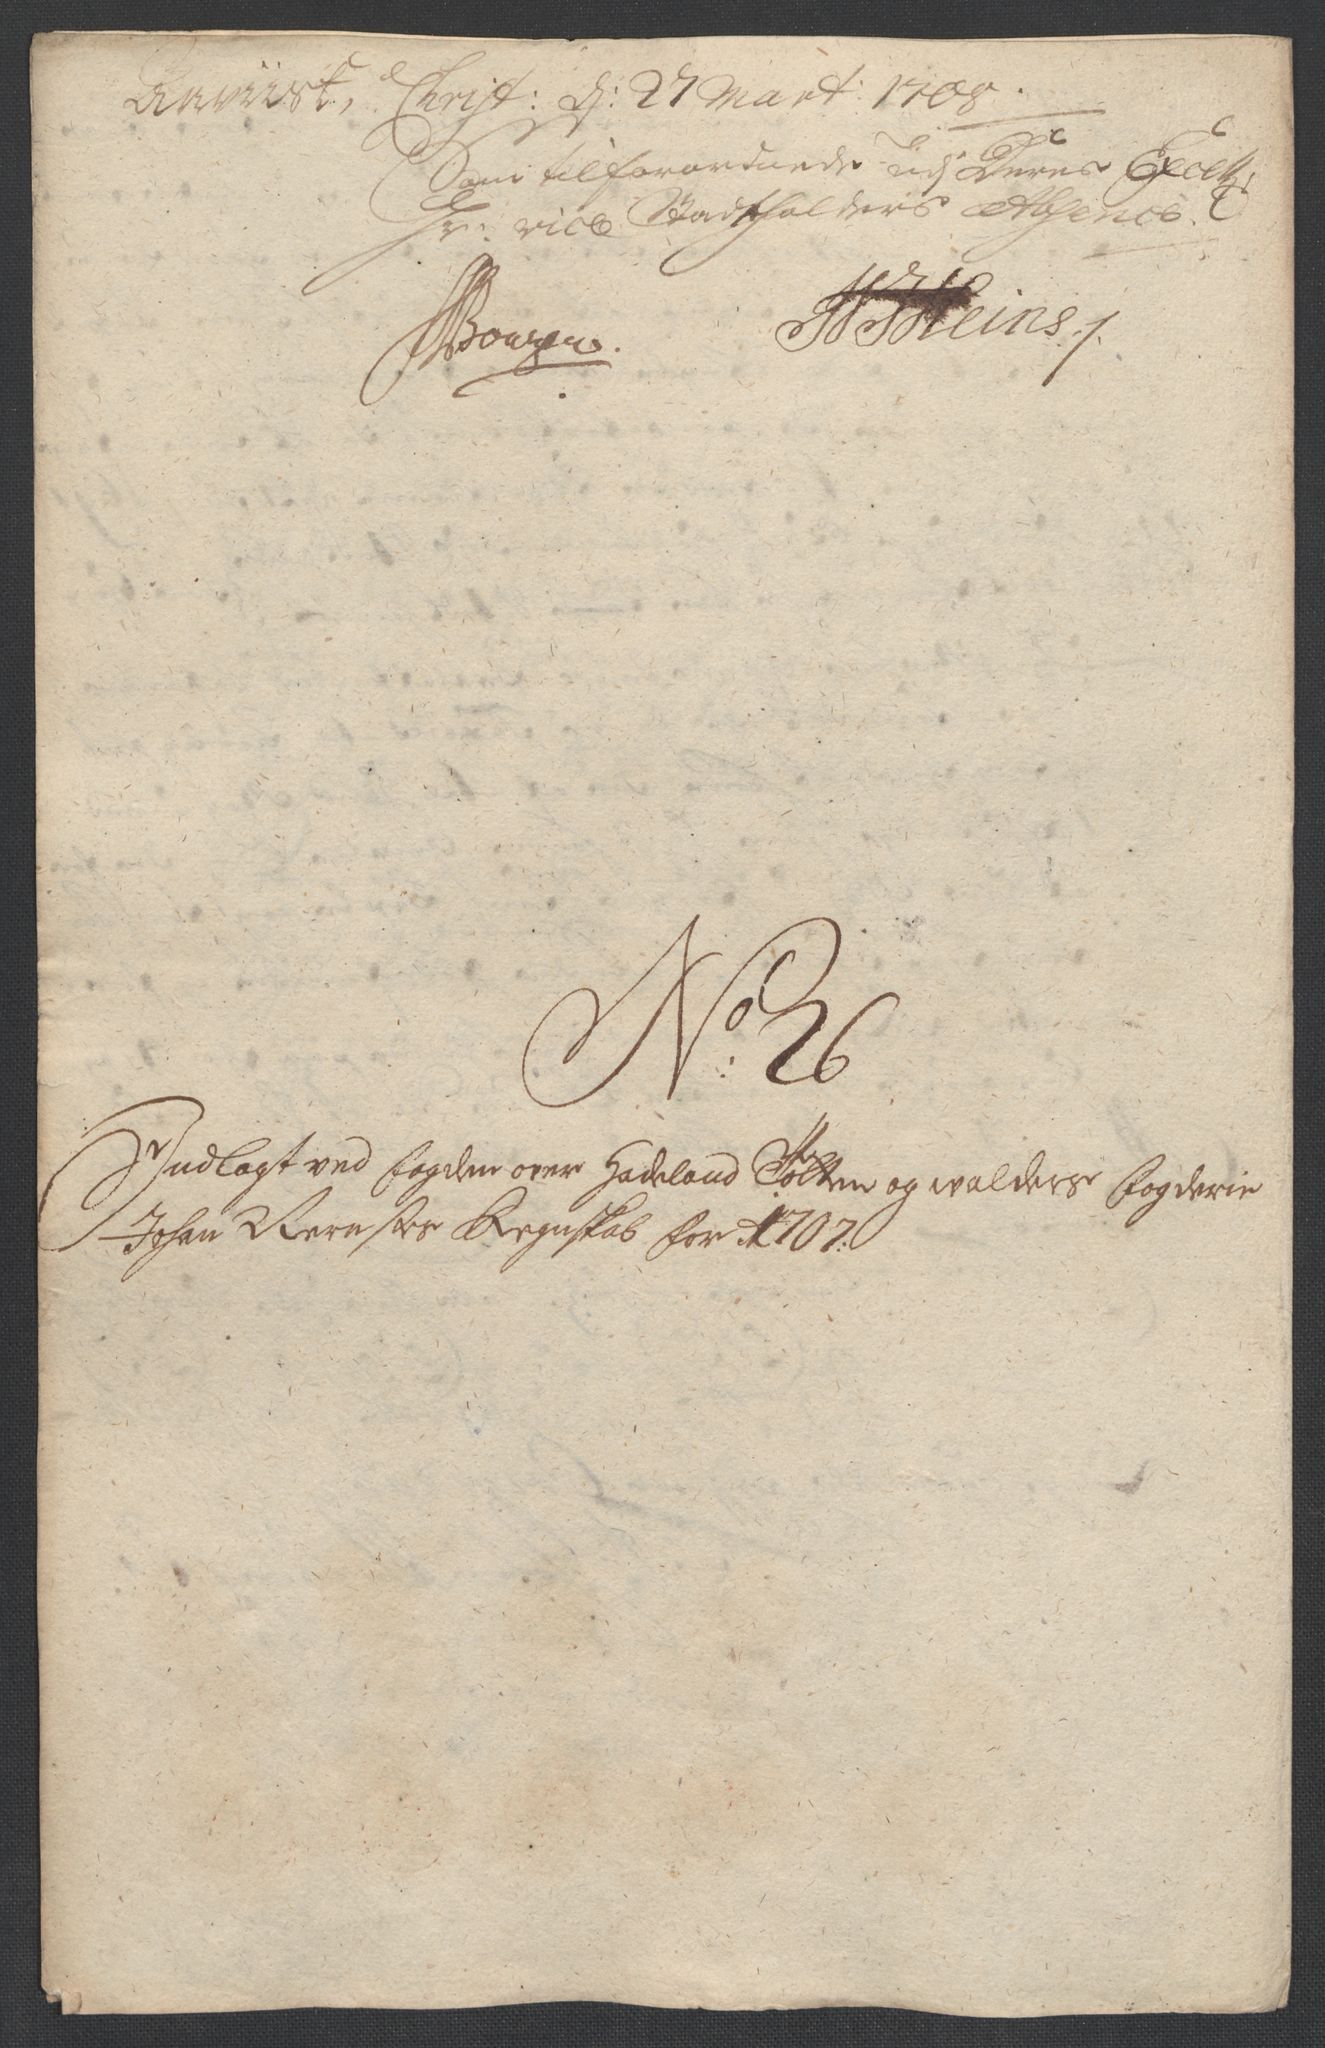 Anviist, Christ: d: 27 Mart: 1708.
Som tilforordnede udj Deres Excell:
Hr: vice Stadtholders Absence.
Heins
No: 26
Indlagt ved fogden over Hadeland Totten og walders fogderie
Johan Regnskab for 1707: